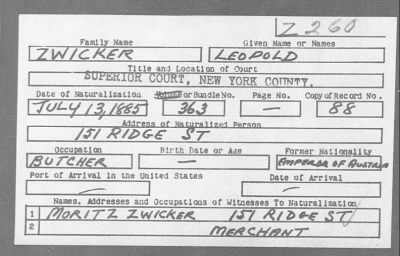 Z 260
Family Name Given Name or Names
ZWICKER LEOPOLD
Title and Location of Court
SUPERIOR COURT, NEW YORK COUNTY.
Date of Naturalization Volume or Bundle No. Page No. Copy of Record No.
JULY 13, 1885 363 — 88
Address of Naturalized Person
151 RIDGE ST
Occupation Birth Date or Age Former Nationality
BUTCHER — EMPEROR OF AUSTRIA
Port of Arrival in the United States Date of Arrival
— —
Names, Addresses and Occupations of Witnesses To Naturalization
1 MORITZ ZWICKER 151 RIDGE ST
2 MERCHANT